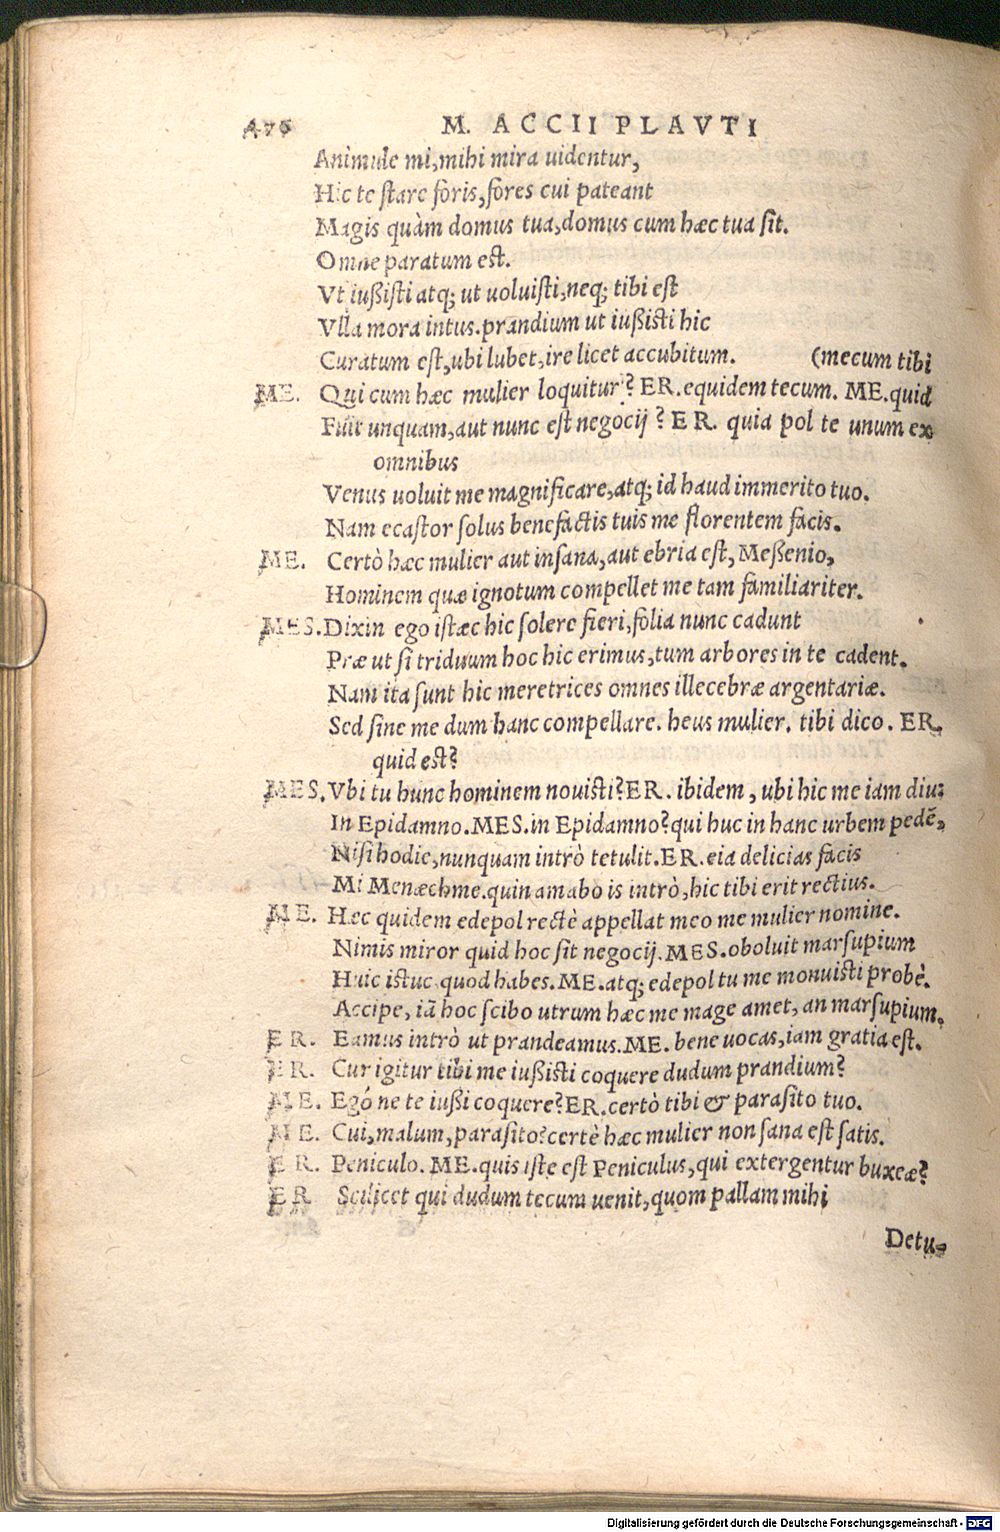 476 M. ACCII PLAVTI
Animule mi, mihi mira uidentur,
Hic te ſtare foris, fores cui pateant
Magis quàm domus tua, domus cum hæc tua ſit.
Omne paratum eſt.
Vt iußiſti atq; ut uoluiſti, neq; tibi eſt
Vlla mora intus. prandium ut iußiſti hic
Curatum eſt, ubi lubet, ire licet accubitum. (mecum tibi
ME. Qui cum hæc mulier loquitur? ER. equidem tecum. ME. quid
Fuit unquam, aut nunc eſt negocij? ER. quia pol te unum ex
omnibus
Venus uoluit me magnificare, atq; id haud immerito tuo.
Nam ecaſtor ſolus benefactis tuis me florentem facis.
ME. Certò hæc mulier aut inſana, aut ebria eſt, Meßenio,
Hominem quæ ignotum compellet me tam familiariter.
MES. Dixin ego iſtæc hic ſolere fieri, folia nunc cadunt
Præ ut ſi triduum hoc hic erimus, tum arbores in te cadent.
Nam ita ſunt hic meretrices omnes illecebræ argentariæ.
Sed ſine me dum hanc compellare. heus mulier. tibi dico. ER.
quid eſt?
MES. Vbi tu hunc hominem nouiſti? ER. ibidem, ubi hic me iam diu:
In Epidamno. MES. in Epidamno? qui huc in hanc urbem pedẽ,
Niſi hodie, nunquam intrò tetulit. ER. eia delicias facis
Mi Menæchme. quin amabo is intrò, hic tibi erit rectius.
ME. Hæc quidem edepol rectè appellat meo me mulier nomine.
Nimis miror quid hoc ſit negocij. MES. oboluit marſupium
Huic iſtuc quod habes. ME. atq; edepol tu me monuiſti probè.
Accipe, iã hoc ſcibo utrum hæc me mage amet, an marſupium.
ER. Eamus intrò ut prandeamus. ME. bene uocas, iam gratia eſt.
ER. Cur igitur tibi me iußiſti coquere dudum prandium?
ME. Egó ne te iußi coquere? ER. certò tibi & paraſito tuo.
ME. Cui, malum, paraſito? certè hæc mulier non ſana eſt ſatis.
ER. Peniculo. ME. quis iſte eſt Peniculus, qui extergentur buxeæ?
ER Scilicet qui dudum tecum uenit, quom pallam mihi
Detu-
Digitalisierung gefördert durch die Deutsche Forschungsgemeinschaft - DFG